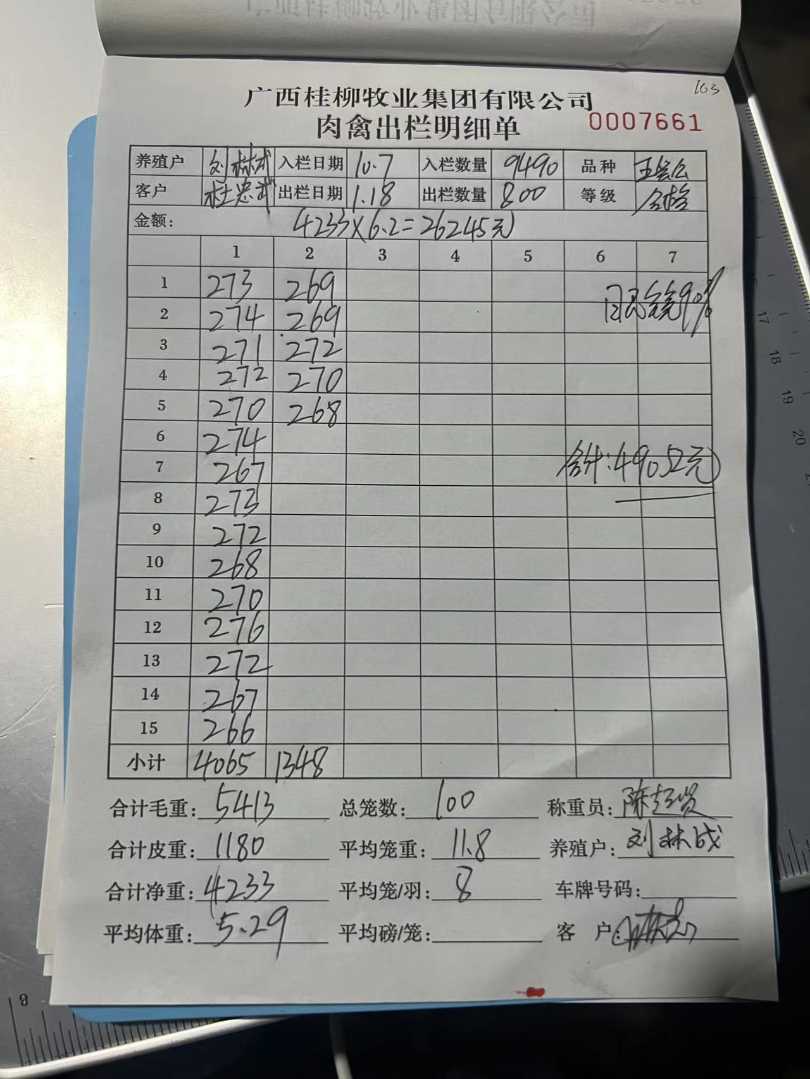 广西桂柳牧业集团有限公司
163
肉禽出栏明细单
0007661
养殖户 刘林成 入栏日期 10.7 入栏数量 9490 品种
客户 杜忠武 出栏日期 1.18 出栏数量 800 等级 合格
金额: 4233×6.2=26245元
1 2 3 4 5 6 7
1 273 269
2 274 269
3 271 272
4 272 270
5 270 268
6 274
7 267
合计:49052元
8 273
9 272
10 268
11 270
12 276
13 272
14 267
15 266
小计 4065 1348
合计毛重: 5413 总笼数: 100 称重员:
合计皮重: 1180 平均笼重: 11.8 养殖户: 刘林成
合计净重: 4233 平均笼/羽: 8 车牌号码:
平均体重: 5.29 平均磅/笼: 客 户:
17
18
19
20